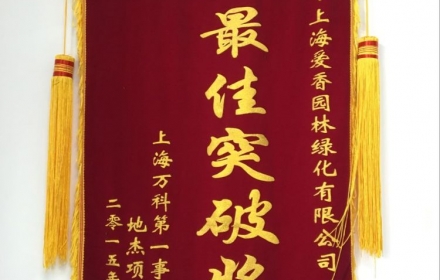 上海爱香园林绿化有限公司
最佳突破奖
上海万科第一事
地杰项
二零一五年